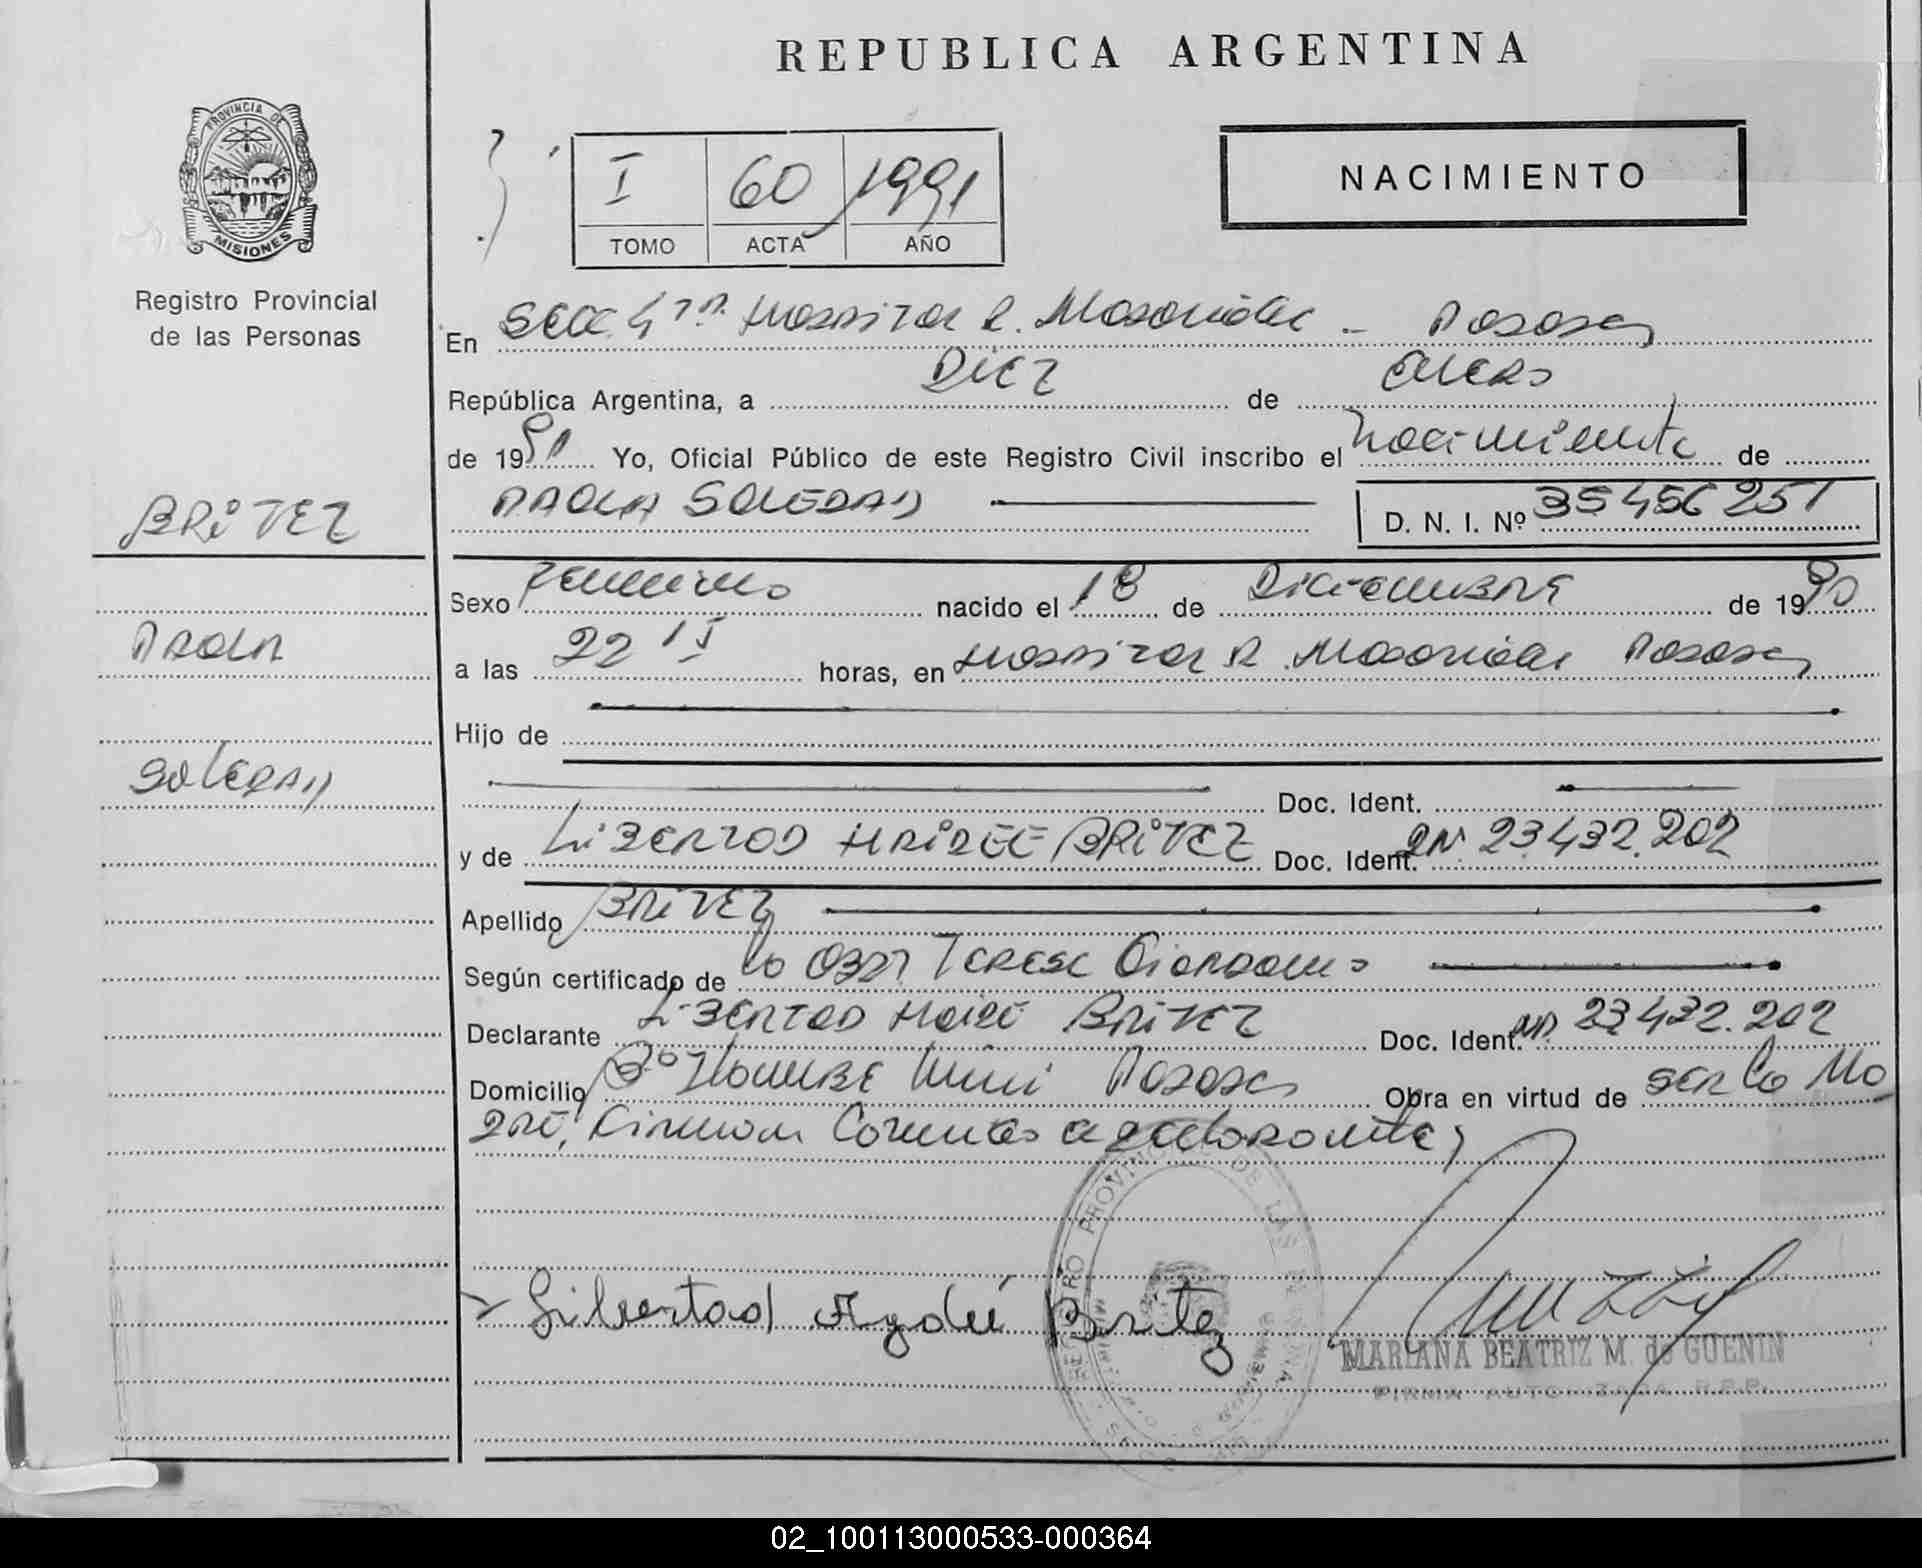 REPUBLICA ARGENTINA
PROVINCIA DE
MISIONES
Registro Provincial
de las Personas
I 60 1991
TOMO ACTA AÑO
NACIMIENTO
En Secc 4ta. Hospital R. Madariaga - Posadas
República Argentina, a Diez de Enero
de 1991 Yo, Oficial Público de este Registro Civil inscribo el Nacimiento de
PAOLA SOLEDAD
D. N. I. Nº 35456251
BRITEZ
PAOLA
SOLEDAD
Sexo Femenino nacido el 18 de Diciembre de 1990
a las 22 15 horas, en Hospital R. Madariaga Posadas
Hijo de
Doc. Ident.
y de LIBERTAD HAIDEE BRITEZ Doc. Ident. DNI 23.432.202
Apellido BRITEZ
Según certificado de la Obst Teresa Giordano
Declarante Libertad Haidé BRITEZ Doc. Ident. DNI 23.432.202
Domicilio Bº Posadas Obra en virtud de ser la Ma
dre, Firman Como
Libertad Aydeé Britez
REGISTRO PROVINCIAL DE LAS PERSONAS
MARIANA BEATRIZ M. de GUENIN
FIRMA AUTORIZADA R.P.P.
02_100113000533-000364